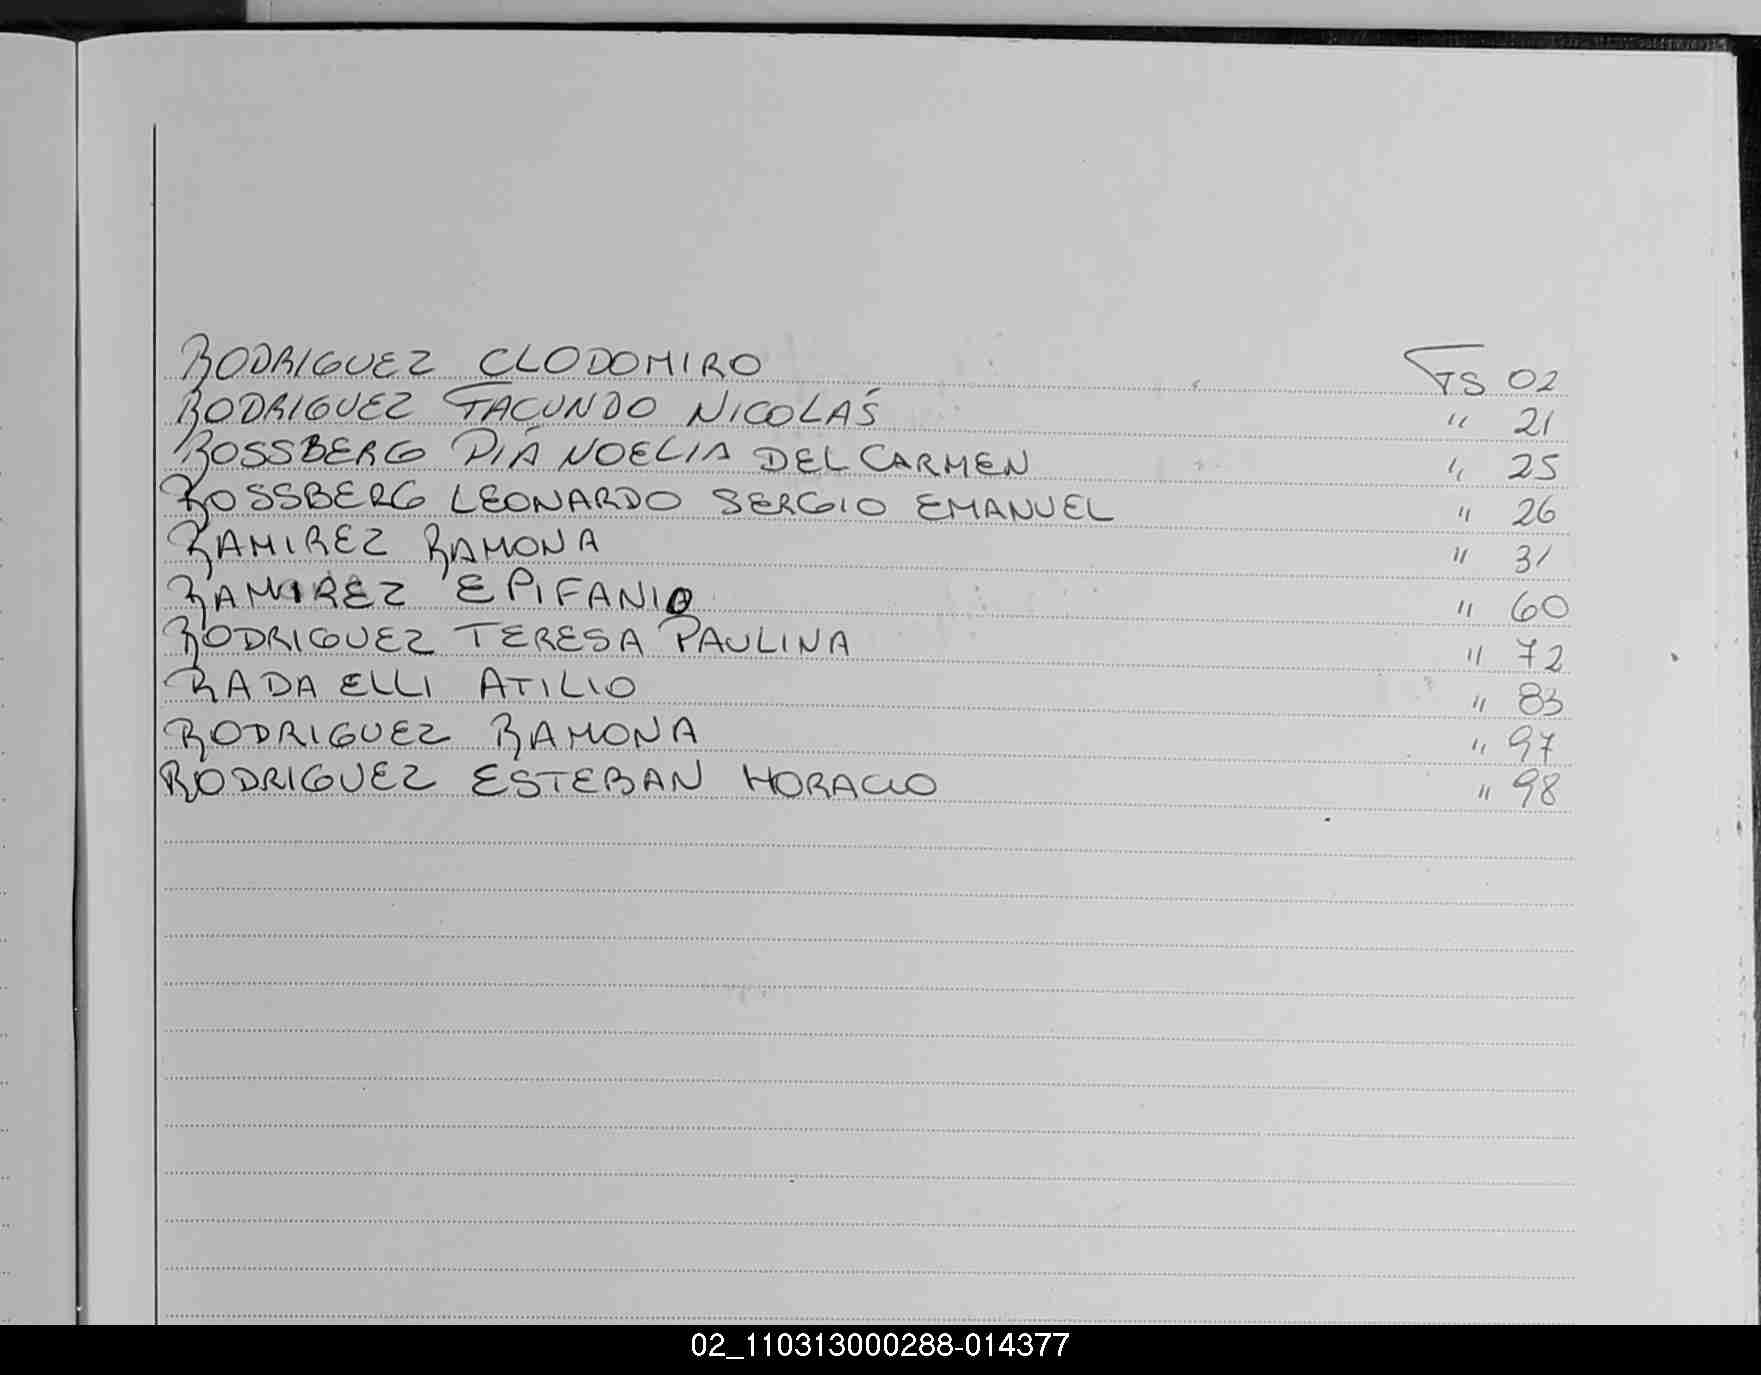 RODRIGUEZ CLODOMIRO FS 02
RODRIGUEZ FACUNDO NICOLÁS " 21
ROSSBERG PIA NOELIA DEL CARMEN " 25
ROSSBERG LEONARDO SERGIO EMANUEL " 26
RAMIREZ RAMONA " 31
RAMIREZ EPIFANIO " 60
RODRIGUEZ TERESA PAULINA " 72
RADAELLI ATILIO " 83
RODRIGUEZ RAMONA " 97
RODRIGUEZ ESTEBAN HORACIO " 98
02_110313000288-014377